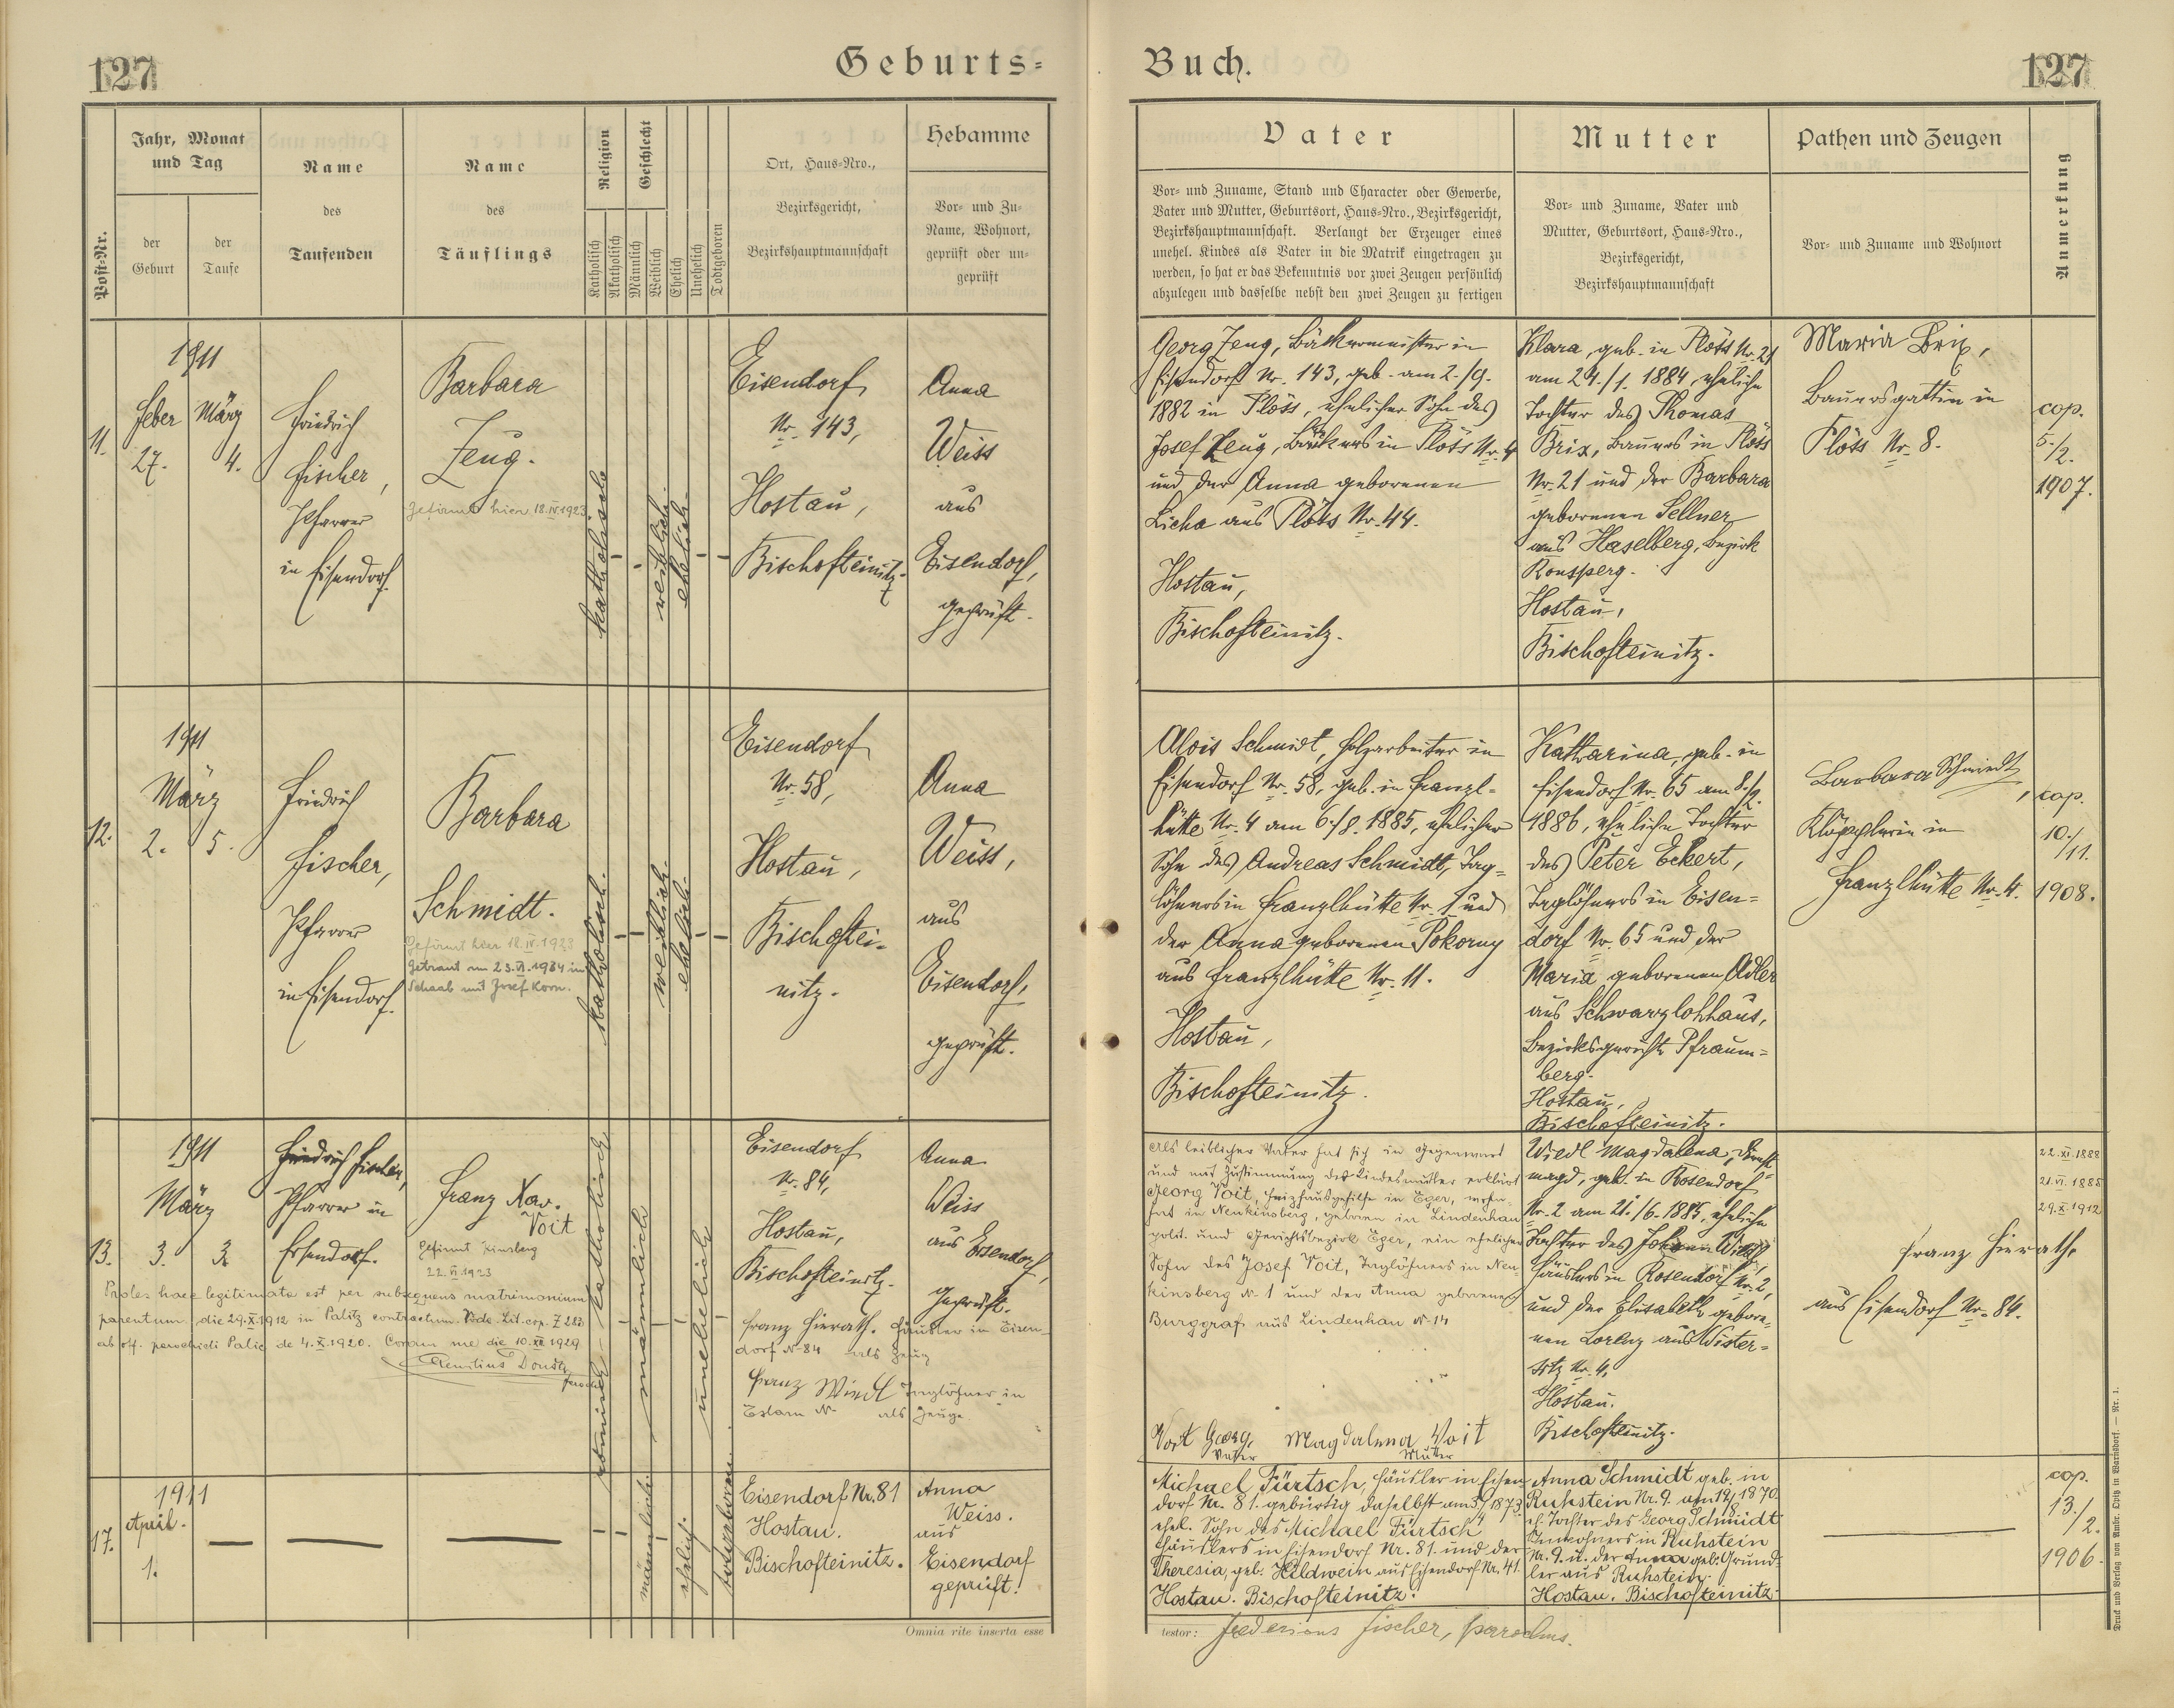 127
Geburts-
Buch.
127
Post-Nr.
Jahr, Monat
und Tag
der
Geburt
der
Taufe
Name
des
Taufenden
Name
des
Täuflings
Religion
Katholisch
Akatholisch
Geschlecht
Männlich
Weiblich
Ehelich
Unehelich
Todtgeboren
Ort, Haus-Nro.,
Bezirksgericht,
Bezirkshauptmannschaft
Hebamme
Vor- und Zu-
Name, Wohnort,
geprüft oder un-
geprüft
Vater
Vor- und Zuname, Stand und Character oder Gewerbe,
Vater und Mutter, Geburtsort, Haus-Nro., Bezirksgericht,
Bezirkshauptmannschaft. Verlangt der Erzeuger eines
unehel. Kindes als Vater in die Matrik eingetragen zu
werden, so hat er das Bekenntnis vor zwei Zeugen persönlich
abzulegen und dasselbe nebst den zwei Zeugen zu fertigen
Mutter
Vor- und Zuname, Vater und
Mutter, Geburtsort, Haus-Nro.,
Bezirksgericht,
Bezirkshauptmannschaft
Pathen und Zeugen
Vor- und Zuname und Wohnort
Anmerkung
11.
1911
Feber
27.
März
4.
Friedrich
Fischer,
Pfarrer
in Eisendorf.
Barbara
Zeug.
Gefirmt hier 18.IV.1923.
katholisch
weiblich.
ehelich.
Eisendorf
Nr. 143,
Hostau,
Bischofteinitz.
Anna
Weiss
aus
Eisendorf,
geprüft.
Georg Zeug, Bäckermeister in
Eisendorf Nr. 143, geb. am 2./9.
1882 in Plöss, ehelicher Sohn des
Josef Zeug, Bäckers in Plöss Nr. 4
und der Anna geborenen
Licha aus Plöss Nr. 44.
Hostau,
Bischofteinitz.
Klara, geb. in Plöss Nr. 21
am 24./1. 1884, eheliche
Tochter des Thomas
Brix, Bauers in Plöss
Nr. 21 und der Barbara
geborenen Sellner
aus Haselberg, Bezirk
Ronsperg.
Hostau,
Bischofteinitz.
Maria Brix,
Bauersgattin in
Plöss Nr. 8.
cop.
5./2.
1907.
12.
1911
März
2.
5.
Friedrich
Fischer,
Pfarrer
in Eisendorf.
Barbara
Schmidt.
Gefirmt hier 18.IV.1923
Getraut am 23.VI.1934 in
Schaab mit Josef Korn.
katholisch.
weiblich.
ehelich.
Eisendorf
Nr. 58,
Hostau,
Bischoftei-
nitz.
Anna
Weiss,
aus
Eisendorf,
geprüft.
Alois Schmidt, Holzarbeiter in
Eisendorf Nr. 58, geb. in Franzl-
hütte Nr. 4 am 6./8. 1885, ehelicher
Sohn des Andreas Schmidt, Tag-
löhners in Franzlhütte Nr. 1 und
der Anna geborenen Pokorny
aus Franzlhütte Nr. 11.
Hostau,
Bischofteinitz.
Katharina, geb. in
Eisendorf Nr. 65 am 8./9.
1886, eheliche Tochter
des Peter Eckert,
Taglöhners in Eisen-
dorf Nr. 65 und der
Maria geborenen Adler
aus Schwarzlohhaus,
Bezirksgericht Pfraum-
berg.
Hostau,
Bischofteinitz.
Barbara Schmidt,
Klöpplerin in
Franzlhütte Nr. 4.
cop.
10./11.
1908.
13.
1911
März
3.
3.
Friedrich Fischer,
Pfarrer in
Eisendorf.
Franz Xav.
Voit
Gefirmt Kinsberg
22.VI.1923
Proles haec legitimata est per subsequens matrimonium
parentum die 29.X.1912 in Palitz contractum. Vide Lit. esp. Z 283
ab off. parochiali Palic de 4.X.1920. Coram me die 10.XII.1929
parochus
römisch - katholisch
männlich
unehelich
Eisendorf
Nr. 84,
Hostau,
Bischofteinitz.
Franz Hierath. Häusler in Eisen-
dorf N. 84 als Zeug
Franz Wiedl Taglöhner in
Eslarn N. als Zeuge.
Anna
Weiss
aus Eisendorf,
geprüft.
Als leiblicher Vater hat sich in Gegenwart
und mit Zustimmung der Kindesmutter erklärt
Georg Voit, Heizhausgehilfe in Eger, wohn-
haft in Neukinsberg, geboren in Lindenhau
polit. und Gerichtsbezirk Eger, ein ehelicher
Sohn des Josef Voit, Taglöhners in Neu-
kinsberg N. 1 und der Anna geborenen
Burggraf aus Lindenhau N. 14
Voit Georg, Magdalena Voit
Vater Mutter
Wiedl Magdalena, Dienst-
magd, geb. in Rosendorf
Nr. 2 am 21./6. 1885, eheliche
Tochter des Johann Wiedl
Häuslers in Rosendorf Nr. 2,
und der Elisabeth gebore-
nen Lorenz aus Wister-
sitz Nr. 4,
Hostau.
Bischofteinitz.
Franz Hierath
aus Eisendorf Nr. 84.
22.XI.1888
21.VI.1885
29.X.1912
17.
1911
April.
1.
männlich
ehelich
totgeboren
Eisendorf Nr. 81
Hostau.
Bischofteinitz.
Anna
Weiss.
aus
Eisendorf
geprüft!
Michael Fürtsch, Häusler in Eisen-
dorf Nr. 81. gebürtig daselbst am 3./4 1873.
ehel. Sohn des Michael Fürtsch
Häuslers in Eisendorf Nr. 81. und der
Theresia, geb. Hildwein aus Eisendorf Nr. 41.
Hostau. Bischofteinitz.
Anna Schmidt geb. in
Ruhstein Nr. 9. am 19/8 1870.
eh. Tochter des Georg Schmidt
Inwohners in Ruhstein
Nr. 9. u. der Anna geb. Gründ-
ler aus Ruhstein.
Hostau. Bischofteinitz.
cop.
13./2.
1906.
Omnia rite inserta esse
testor: Fredericus Fischer, parochus.
Druck und Verlag von Ambr. Opitz in Warnsdorf. — Nr. 1.